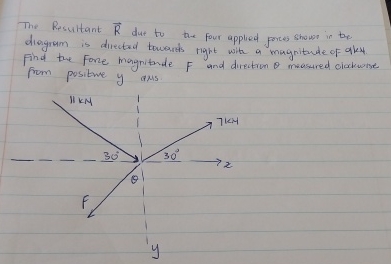 The Resultant R⃗ due to the four applied forces shown in the
diagram is directed towards right with a magnitude of 9kN
Find the Force magnitude F and direction θ measured clockwise
from positive y axis.
11KN
7KN
30° 30°
x
θ
F
y